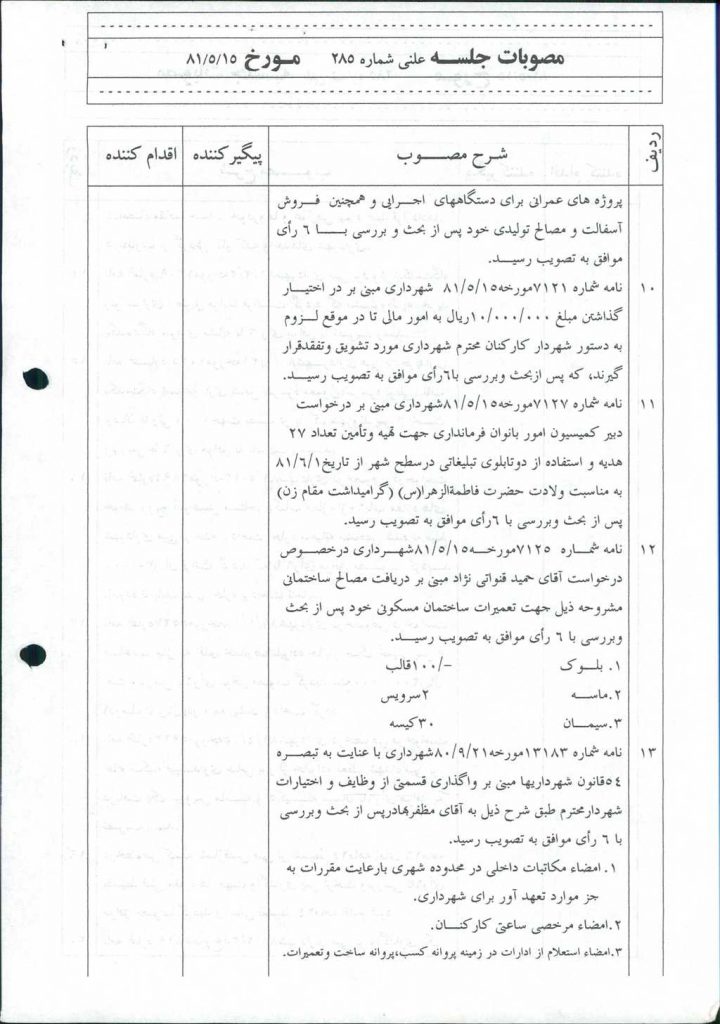 مصوبات جلسه علنی شماره ۲۸۵ مورخ ۸۱/۵/۱۵
ردیف شرح مصوب پیگیرکننده اقدام کننده
پروژه های عمرانی برای دستگاههای اجرایی و همچنین فروش
آسفالت و مصالح تولیدی خود پس از بحث و بررسی با ۶ رأی
موافق به تصویب رسید.
۱۰ نامه شماره ۷۱۲۱مورخه۸۱/۵/۱۵ شهرداری مبنی بر در اختیار
گذاشتن مبلغ ۱۰/۰۰۰/۰۰۰ریال به امور مالی تا در موقع لزوم
به دستور شهردار کارکنان محترم شهرداری مورد تشویق وتفقدقرار
گیرند، که پس ازبحث وبررسی با۶رأی موافق به تصویب رسید.
۱۱ نامه شماره ۷۱۲۷مورخه۸۱/۵/۱۵شهرداری مبنی بر درخواست
دبیر کمیسیون امور بانوان فرمانداری جهت تهیه وتأمین تعداد ۲۷
هدیه و استفاده از دوتابلوی تبلیغاتی درسطح شهر از تاریخ۸۱/۶/۱
به مناسبت ولادت حضرت فاطمةالزهرا(س) (گرامیداشت مقام زن)
پس از بحث وبررسی با ۶رأی موافق به تصویب رسید.
۱۲ نامه شماره ۷۱۲۵مورخه۸۱/۵/۱۵شهرداری درخصوص
درخواست آقای حمید قنواتی نژاد مبنی بر دریافت مصالح ساختمانی
مشروحه ذیل جهت تعمیرات ساختمان مسکونی خود پس از بحث
وبررسی با ۶ رأی موافق به تصویب رسید.
۱. بلوک ۱۰۰/-قالب
۲.ماسه ۲سرویس
۳.سیمان ۳۰کیسه
۱۳ نامه شماره ۱۳۱۸۳مورخه۸۰/۹/۲۱شهرداری با عنایت به تبصره
۵۴قانون شهرداریها مبنی بر واگذاری قسمتی از وظایف و اختیارات
شهردارمحترم طبق شرح ذیل به آقای مظفربهادرپس از بحث وبررسی
با ۶ رأی موافق به تصویب رسید.
۱. امضاء مکاتبات داخلی در محدوده شهری بارعایت مقررات به
جز موارد تعهد آور برای شهرداری.
۲.امضاء مرخصی ساعتی کارکنان.
۳.امضاء استعلام از ادارات در زمینه پروانه کسب،پروانه ساخت وتعمیرات.